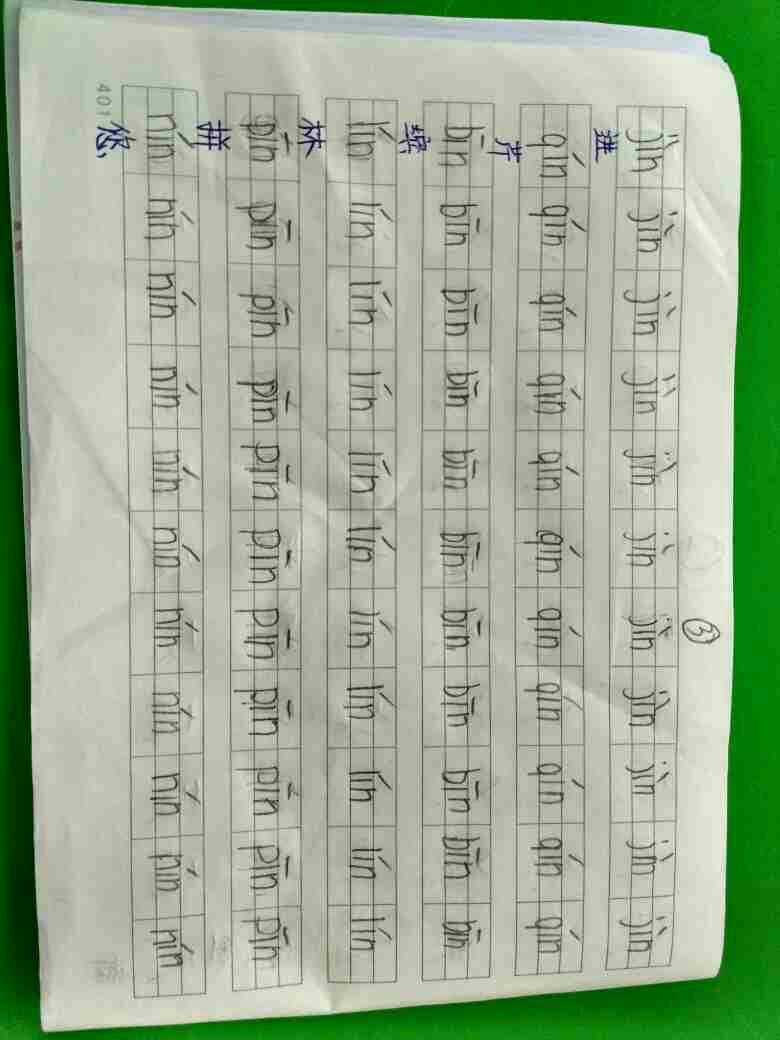 ③
jìn jìn jìn jìn jìn jìn jìn jìn jìn jìn jìn
进
qín qín qín qín qín qín qín qín qín qín qín
芹
bīn bīn bīn bīn bīn bīn bīn bīn bīn bīn bīn
lín lín lín lín lín lín lín lín lín lín lín
林
pīn pīn pīn pīn pīn pīn pīn pīn pīn pīn pīn
拼
nín nín nín nín nín nín nín nín nín nín nín
您
401